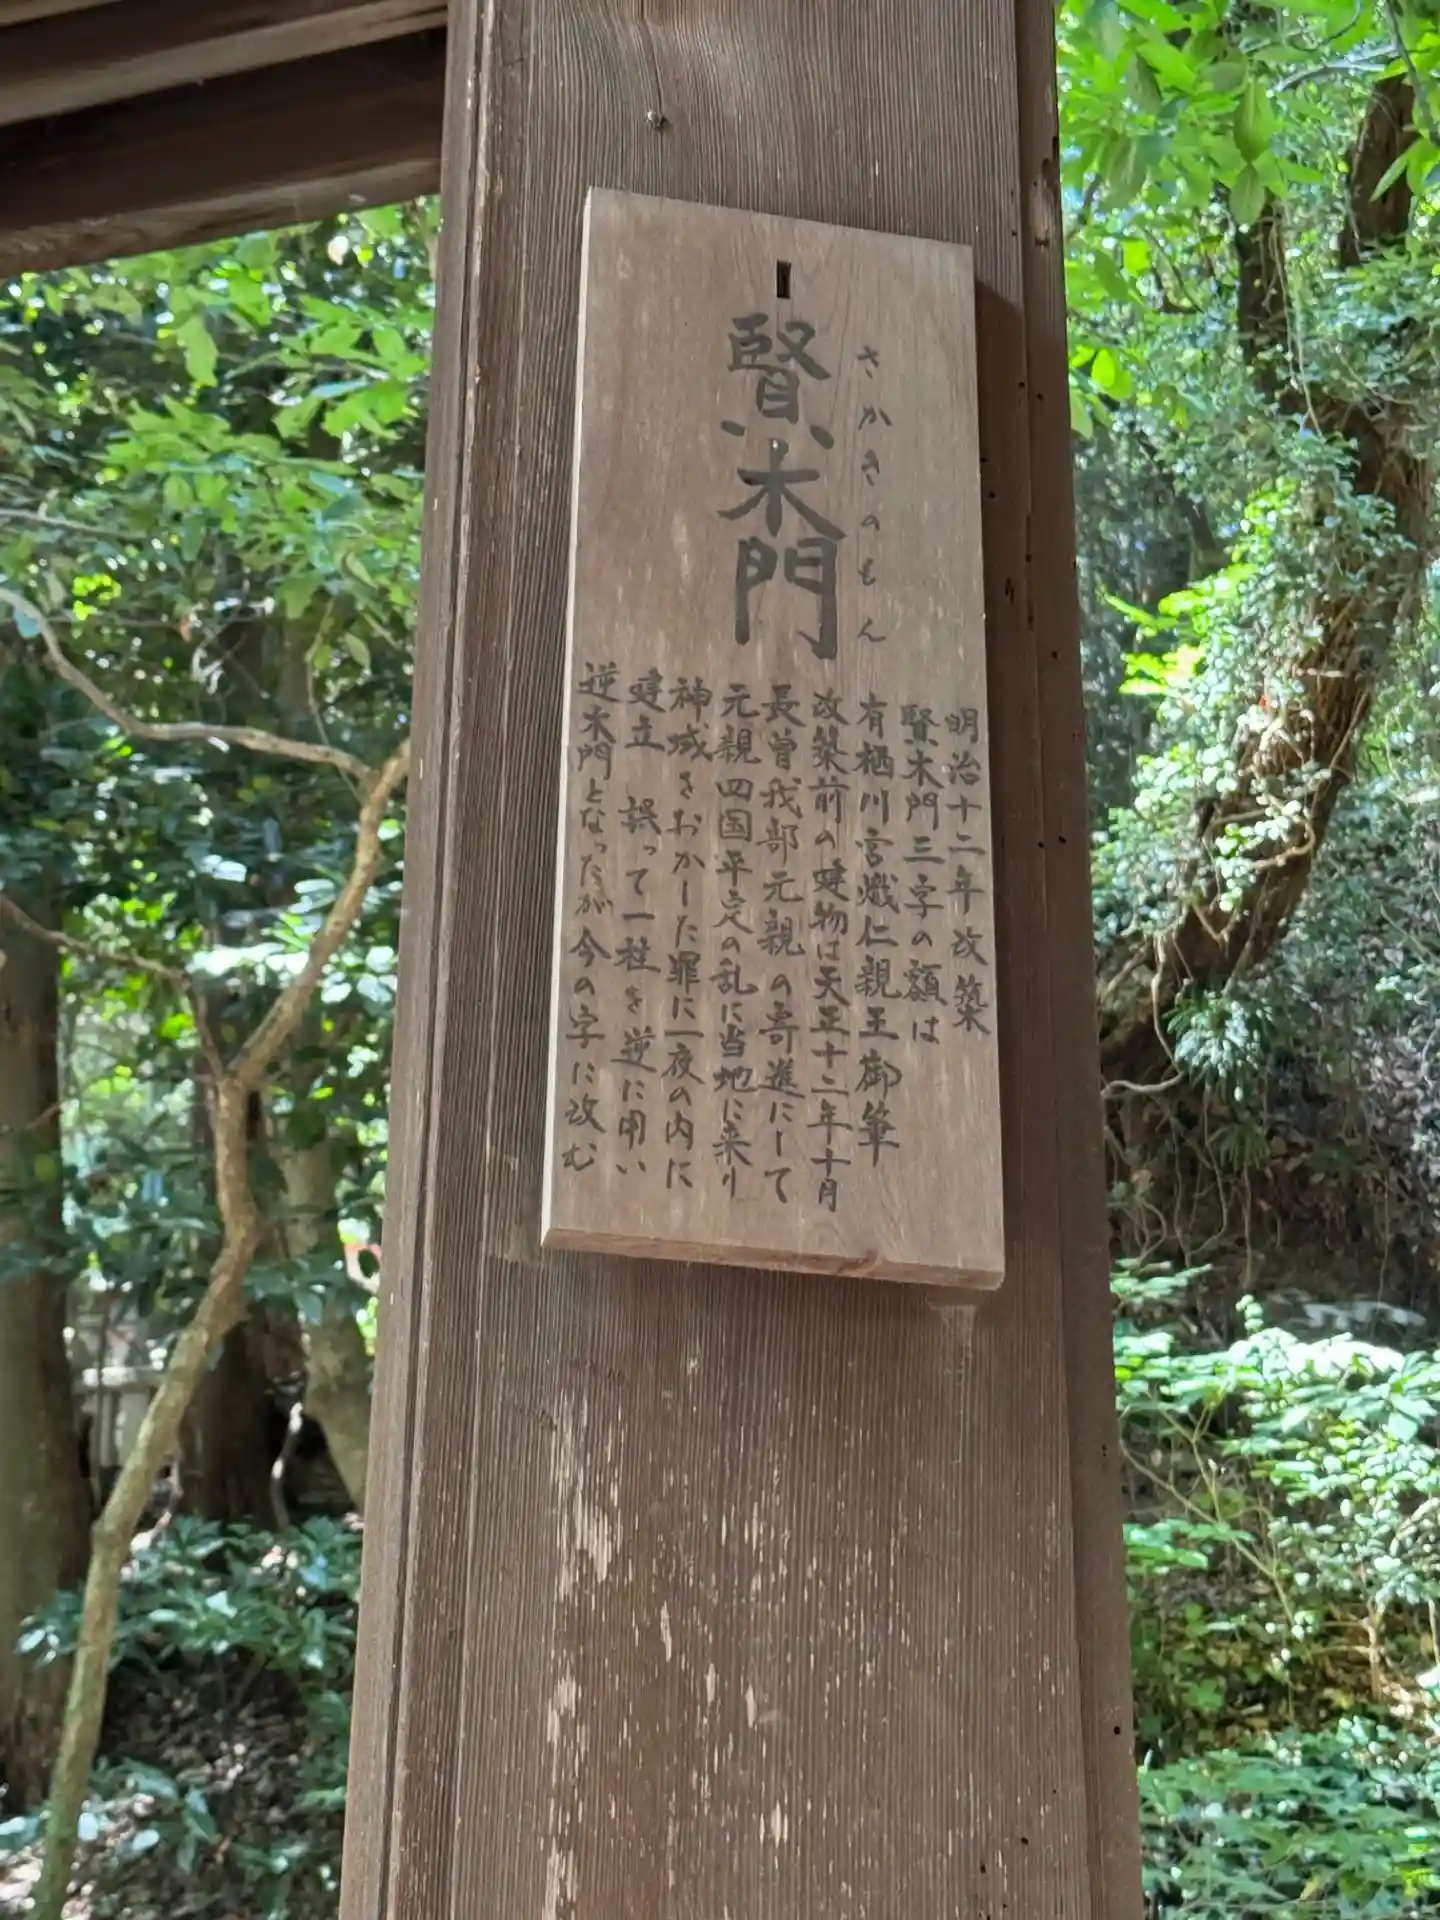 賢木門
さかきのもん
明治十二年改築
賢木門三字の額は
有栖川宮熾仁親王御筆
改築前の建物は天正十二年十月
長曽我部元親の寄進にして
元親四国平定の乱に当地に来り
神域をおかした罪に一夜の内に
建立 誤って一柱を逆に用い
逆木門となったが今の字に改む